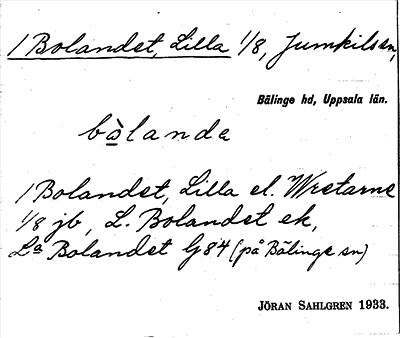 1 Bolandet, Lilla 1/8, Jumkils sn,
Bälinge hd, Uppsala län.
bòlanda
1 Bolandet, Lilla el. Wretarne
1/8 jb, L. Bolandet ek,
La Bolandet G84 (på Bälinge sn)
JÖRAN SAHLGREN 1933.